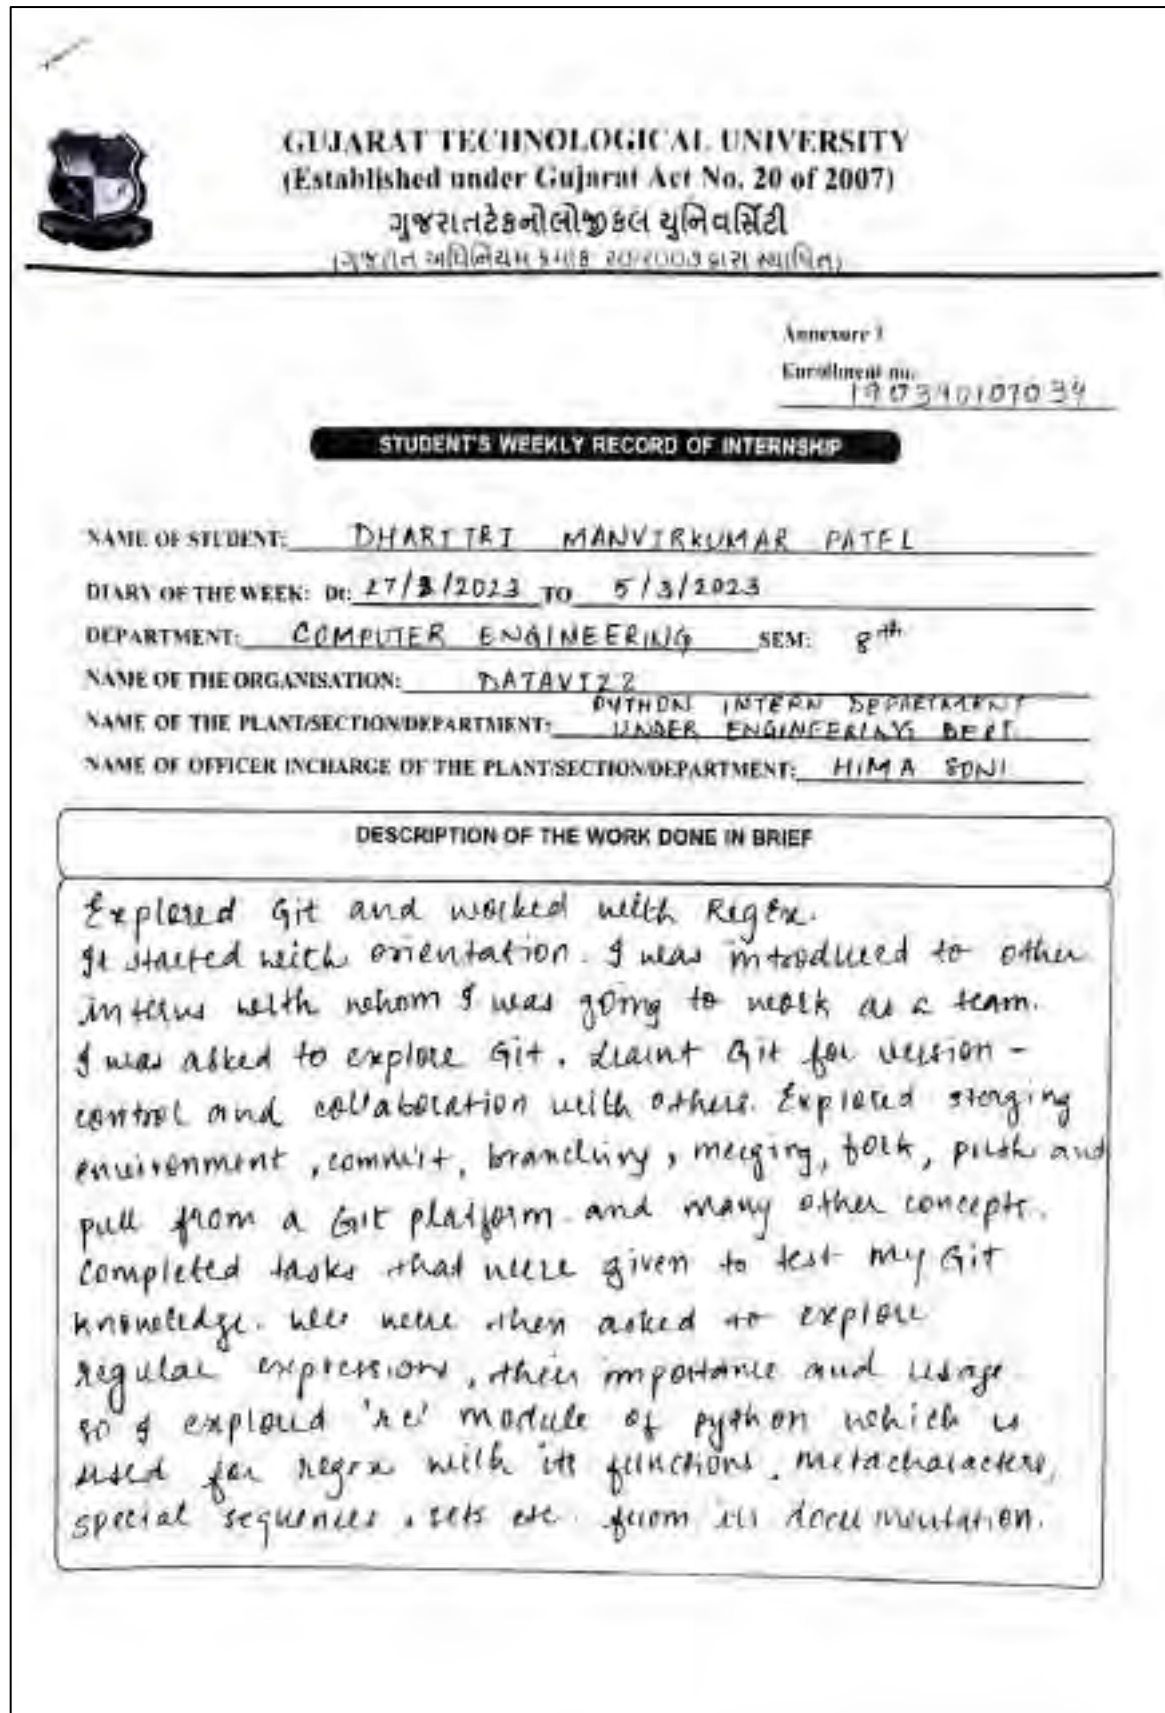 GUJARAT TECHNOLOGICAL UNIVERSITY
(Established under Gujarat Act No. 20 of 2007)
ગુજરાતટેકનોલોજીકલ યુનિવર્સિટી
(ગુજરાત અધિનિયમ ક્રમાંક: ૨૦/૨૦૦૭ દ્વારા સ્થાપિત)
Annexure 1
Enrollment no.
190340107034
STUDENT'S WEEKLY RECORD OF INTERNSHIP
NAME OF STUDENT: DHARITRI MANVIRKUMAR PATEL
DIARY OF THE WEEK: Dt: 27/2/2023 TO 5/3/2023
DEPARTMENT: COMPUTER ENGINEERING SEM: 8th
NAME OF THE ORGANISATION: DATAVIZZ
PYTHON INTERN DEPARTMENT
NAME OF THE PLANT/SECTION/DEPARTMENT: UNDER ENGINEERING DEPT.
NAME OF OFFICER INCHARGE OF THE PLANT/SECTION/DEPARTMENT: HIMA SONI
DESCRIPTION OF THE WORK DONE IN BRIEF
Explored Git and worked with RegEx.
It started with orientation. I was introduced to other
interns with whom I was going to work as a team.
I was asked to explore Git. Learnt Git for version-
control and collaboration with others. Explored staging
environment, commit, branching, merging, fork, push and
pull from a Git platform and many other concepts.
Completed tasks that were given to test my Git
knowledge. We were then asked to explore
regular expressions, their importance and usage
so I explored 're' module of python which is
used for regex with its functions, metacharacters,
special sequences, sets etc. from its documentation.